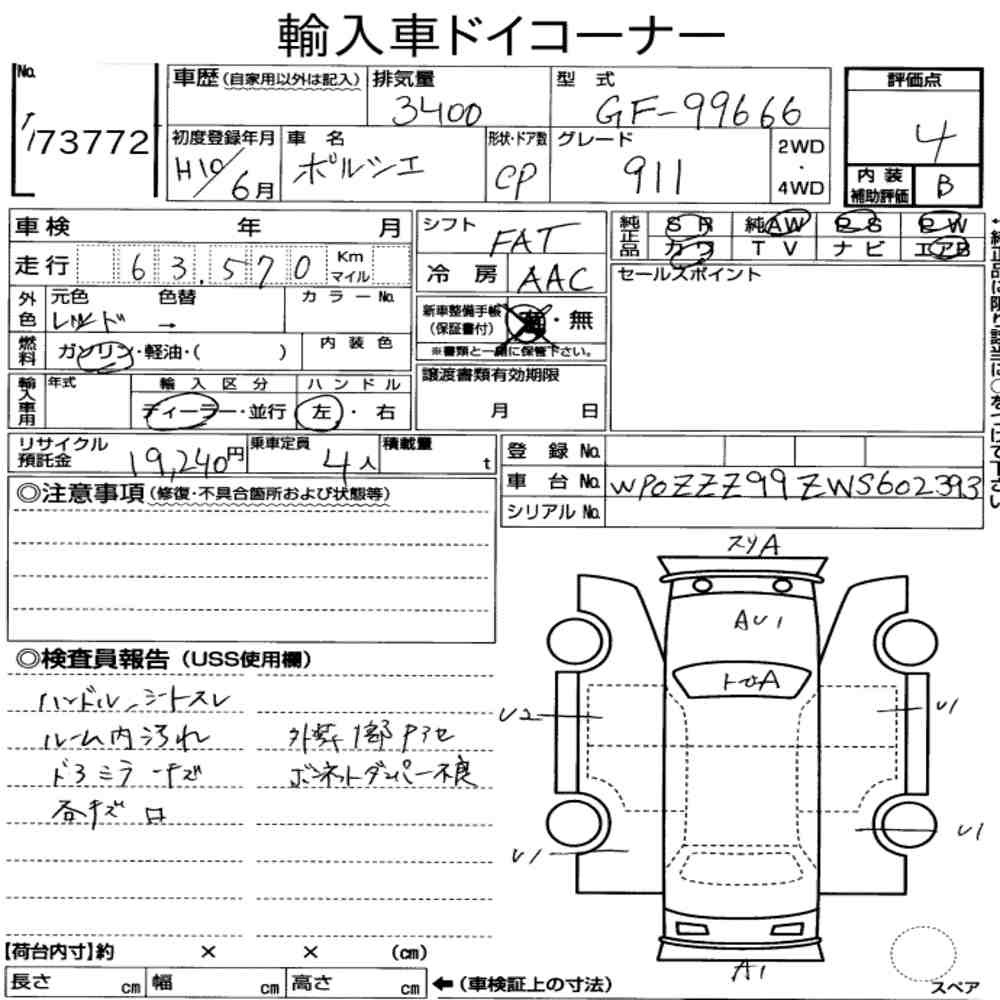 輸入車ドイコーナー
No.
73772
車歴(自家用以外は記入)
排気量
3400
型 式
GF-99666
評価点
4
初度登録年月
H10/6月
車 名
ポルシェ
形状・ドア数
CP
グレード
911
2WD
・
4WD
内装
補助評価
B
車検 年 月
走行 63,570 Km マイル
シフト
FAT
冷房
AAC
純正品
SR 純AW PS PW
カワ TV ナビ エアB
セールスポイント
外色
元色 色替
レッド →
カラーNo.
燃料
ガソリン・軽油・( )
内装色
新車整備手帳
(保証書付)
有・無
※書類と一緒に保管下さい。
輸入車用
年式
輸入区分
ディーラー・並行
ハンドル
左・右
譲渡書類有効期限
月 日
リサイクル
預託金
19,240円
乗車定員
4人
積載量
t
登録No.
車台No.
WP0ZZZ99ZWS602393
シリアルNo.
←純正品に限り該当に○をつけて下さい
◎注意事項(修復・不具合箇所および状態等)
◎検査員報告(USS使用欄)
ハンドル、シートスレ
ルーム内汚れ
ドアミラーキズ
各キズ
外装1部
ボンネットダンパー不良
スリA
AU1
トビA
U2
U1
U1
U1
A1
スペア
【荷台内寸】約 × × (cm)
長さ cm 幅 cm 高さ cm ←(車検証上の寸法)